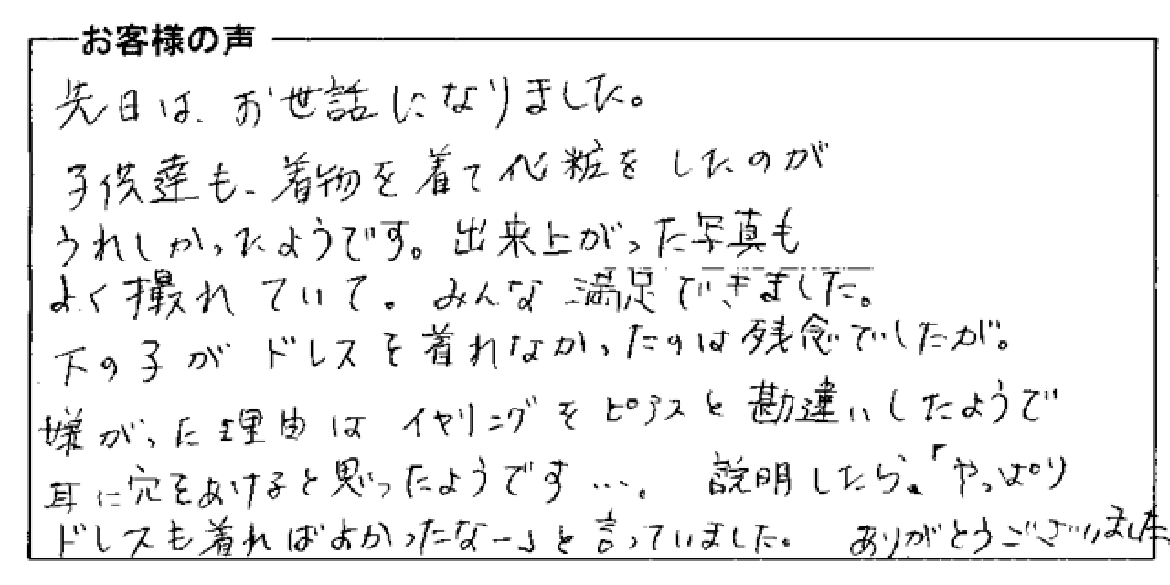 お客様の声
先日は、お世話になりました。
子供達も、着物を着て化粧をしたのが
うれしかったようです。出来上がった写真も
よく撮れていて。みんな満足できました。
下の子がドレスを着れなかったのは残念でしたが。
嫌がった理由はイヤリングをピアスと勘違いしたようで
耳に穴をあけると思ったようです…。説明したら、「やっぱり
ドレスも着ればよかったなー」と言っていました。ありがとうございました